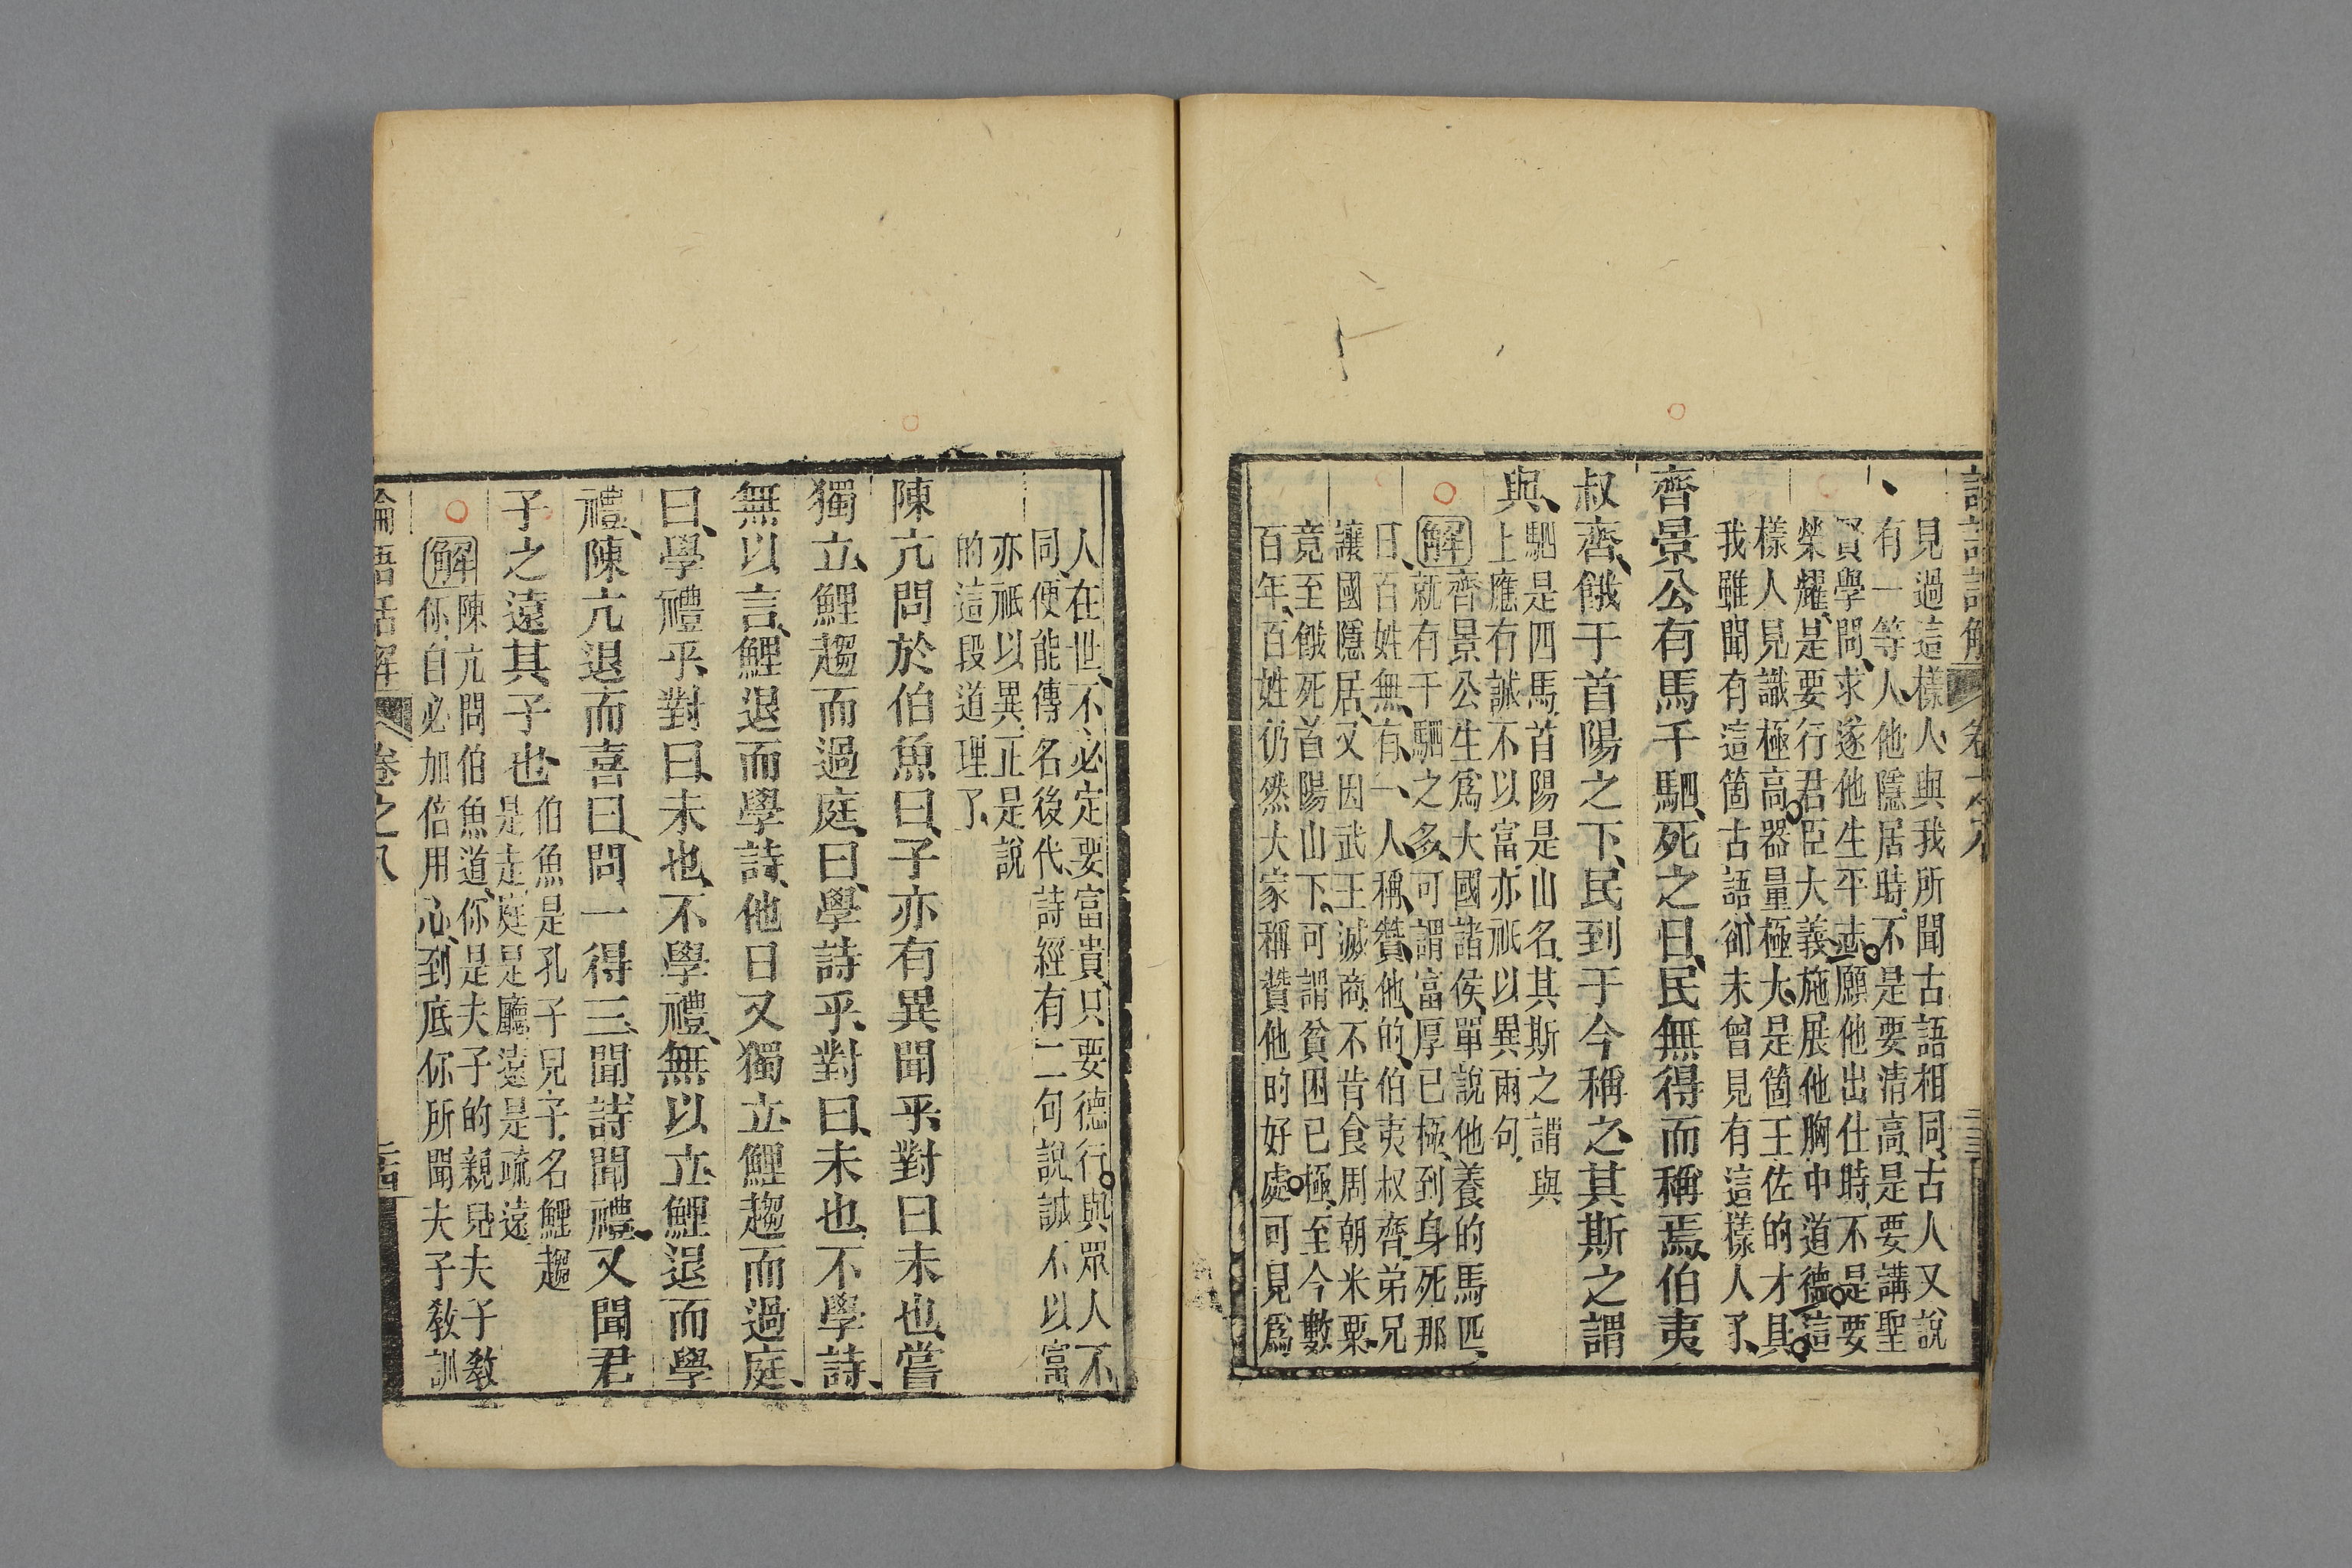 見過這樣人與我所聞古語相同古人又說
有一等人他隱居時不是要清高是要講聖
賢學問求遂他生平志願他出仕時不是要
榮耀是要行君臣大義施展他胸中道德這
樣人見識極高器量極大是箇王佐的才具
我雖聞有這箇古語卻未曾見有這樣人了
齊景公有馬千駟死之日民無得而稱焉伯夷
叔齊餓于首陽之下民到于今稱之其斯之謂
與
駟是四馬首陽是山名其斯之謂與
上應有誠不以富亦祇以異兩句
解
齊景公生爲大國諸侯單說他養的馬匹
就有千駟之多可謂富厚已極到身死那
日百姓無有一人稱贊他的伯夷叔齊弟兄
讓國隱居又因武王滅商不肯食周朝米粟
竟至餓死首陽山下可謂貧困已極至今數
百年百姓仍然大家稱贊他的好處可見爲
人在世不必定要富貴只要德行與眾人不
同便能傳名後代詩經有二句說誠不以富
亦祇以異正是說
的這段道理了
陳亢問於伯魚曰子亦有異聞乎對曰未也嘗
獨立鯉趨而過庭曰學詩乎對曰未也不學詩
無以言鯉退而學詩他日又獨立鯉趨而過庭
曰學禮乎對曰未也不學禮無以立鯉退而學
禮陳亢退而喜曰問一得三聞詩聞禮又聞君
子之遠其子也
伯魚是孔子兒子名鯉趨
是走庭是廳遠是疏遠
解
陳亢問伯魚道你是夫子的親兒夫子教
你自必加倍用心到底你所聞夫子教訓
論語話解
卷之八